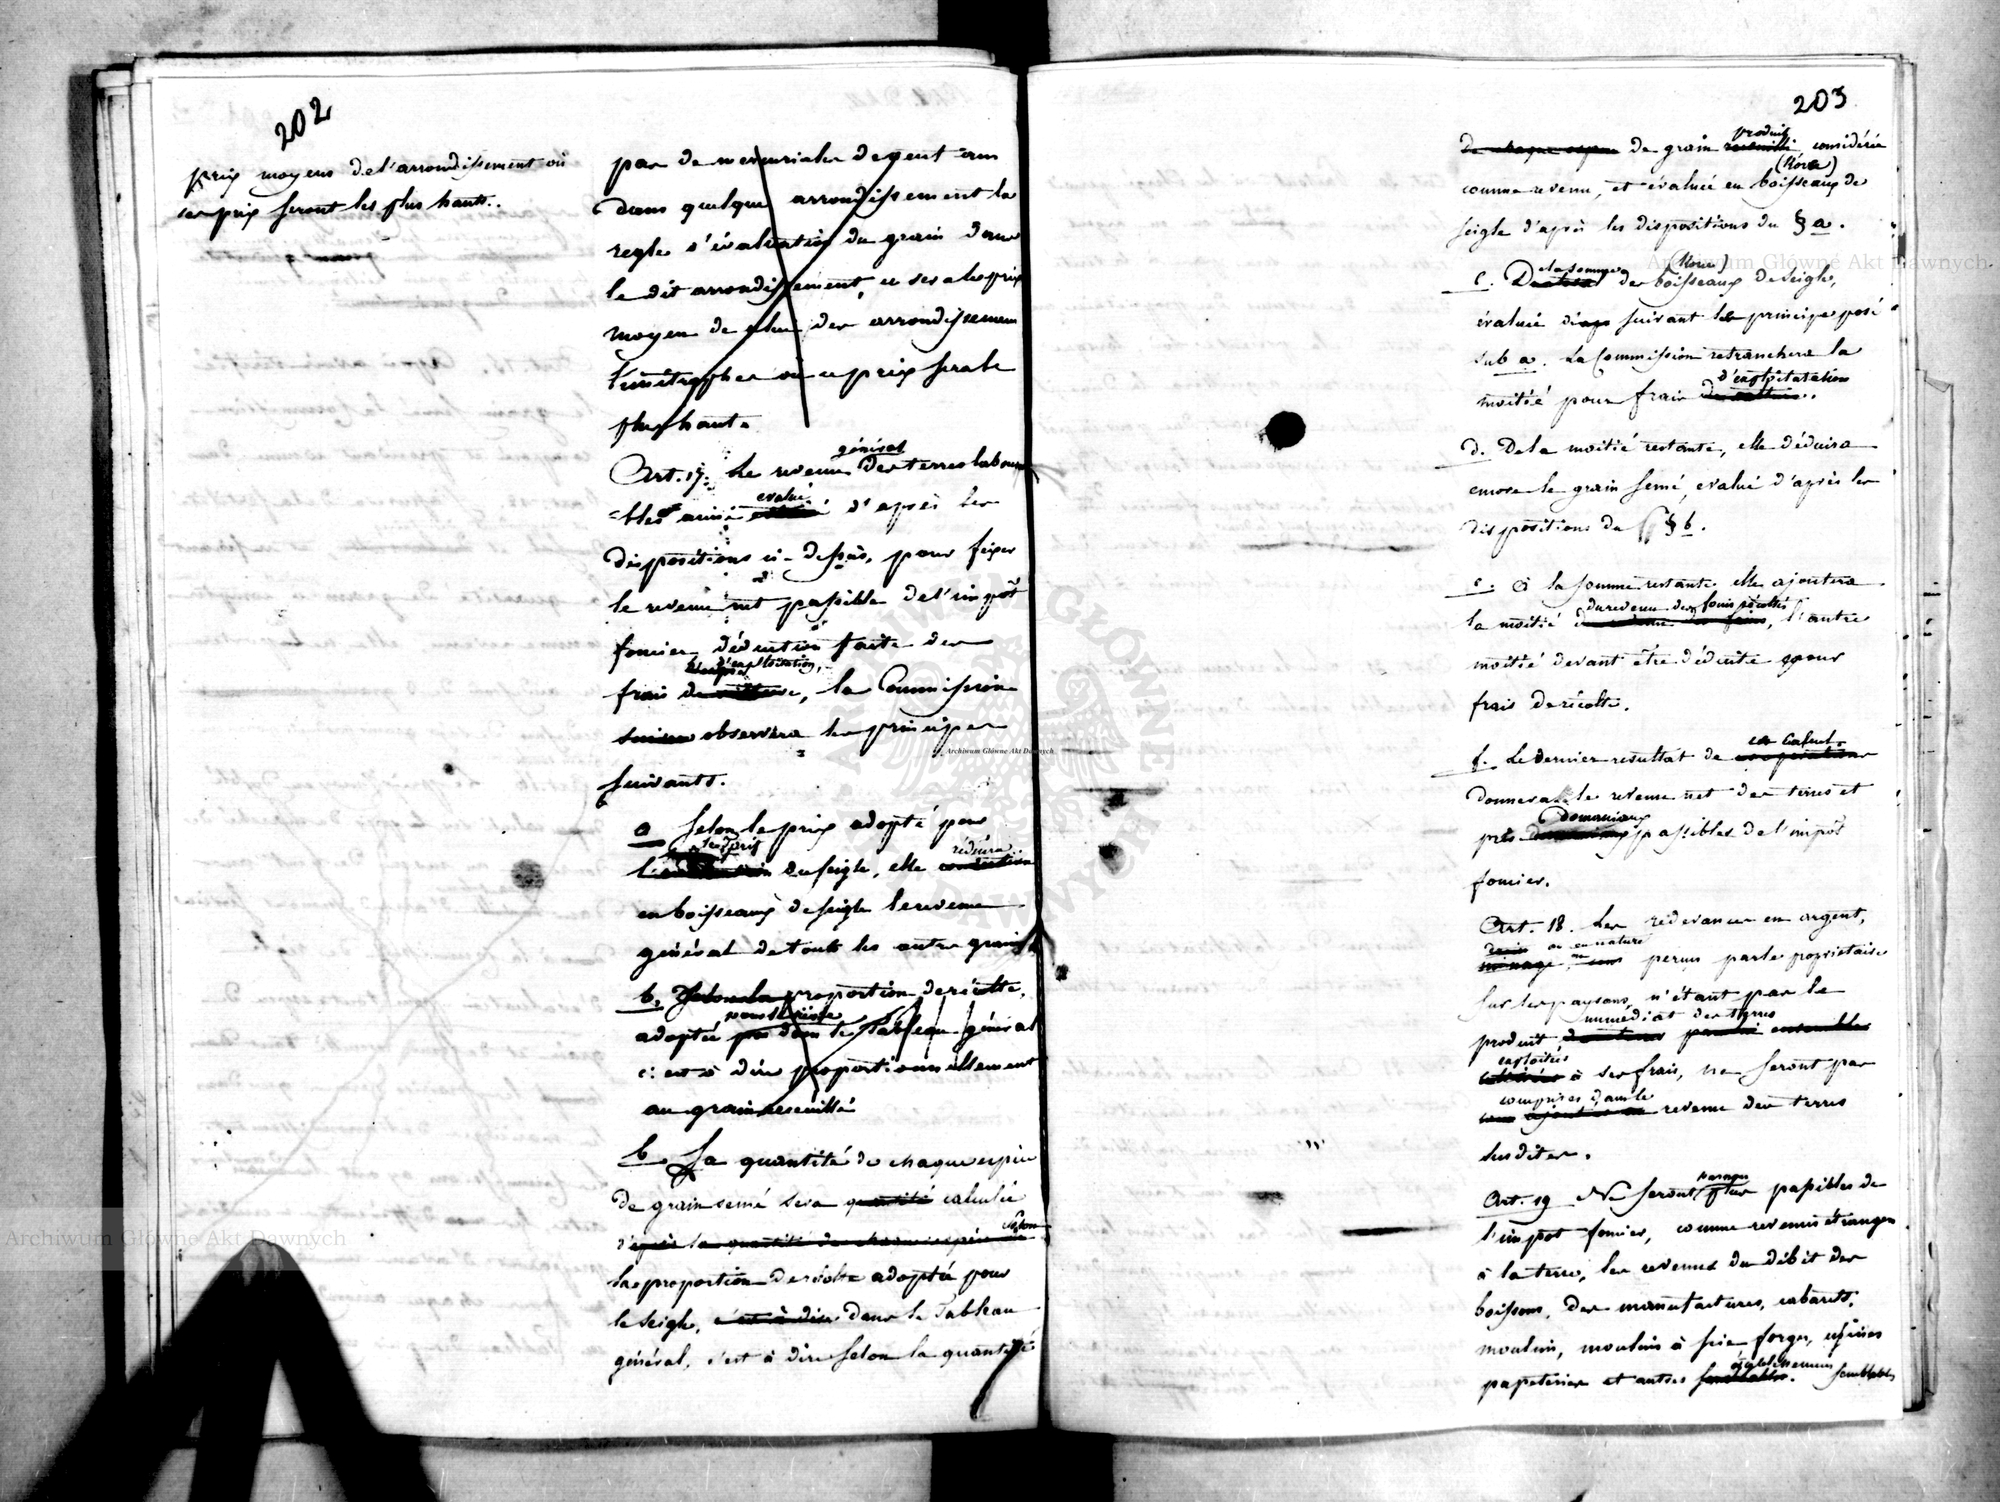 202
prix moyens de l'arrondissement où
ces prix seront les plus hauts.
pas de mercuriales
dans quelque arrondissement la
regle d'évaluation du grain dans
le dit arrondissement, ce sera le prix
moyen de celui des arrondissemens
limitrophes où ce prix sera le
plus haut.
général
Art. 17. Le revenu des terres laboura
evalué
=bles ainsi d'après les
dispositions ci-dessus, pour fixer
le revenu net passible de l'impôt
foncier déduction faite des
d'exploitation,
frais de culture, la Commission
suivra observera les principes
suivants.
a Selon le prix adopté pour
le prix réduira
du seigle, elle
en boisseaux de seigle le revenu
général de touts les autres grains
b. Selon la proportion de récolte,
pour le seigle
adoptée dans le Tableau général
c: est à dire proportionnellement
au grain recueilli
b. La quantité de chaque espèce
de grain semé sera quantité calculée
selon
d'après la quantité de chaque espèce de
la proportion de récolte adoptée pour
le seigle, c'est à dire dans le Tableau
général, c'est à dire selon la quantité
203
produit
de chaque espece de grain recueilli, considérée
(Korce)
comme revenu, et évaluée en boisseaux de
seigle d'après les dispositions du § a.
de la somme (Korce)
c. des boisseaux de seigle,
évaluée suivant le principe posé
sub a. La Commission retranchera la
d'exploitation
moitié pour frais de culture.
d. De la moitié restante, elle déduira
encore le grain semé, evalué d'après les
dispositions du § b.
e. à la somme restante elle ajoutera
du revenu des foins récoltés
la moitié du revenu des foins, l'autre
moitié devant être déduite pour
frais de récolte.
ce calcul
f. Le dernier resultat de ces opérations
donnera le revenu net des terres et
domaniaux
prés passibles de l'impôt
foncier.
Art. 18. Les redevances en argent,
ou en nature
perçus par le propriétaire
sur les paysans, n'étant pas le
immédiat des terres
produit ensemble
exploitées
cultivées à ses frais, ne seront pas
comprises dans le
ajoutées au revenu des terres
susdites.
Art. 19 Ne seront pas passibles de
l'impot foncier, comme revenus étrangers
à la terre, les revenus du débit des
boissons, des manufactures, cabarets,
moulins, moulins à scie forges, usines
établissemens
papeteries et autres semblables. semblables
Archiwum Główne Akt Dawnych
Archiwum Główne Akt Dawnych
Archiwum Główne Akt Dawnych
ARCHIWUM GŁÓWNE AKT DAWNYCH